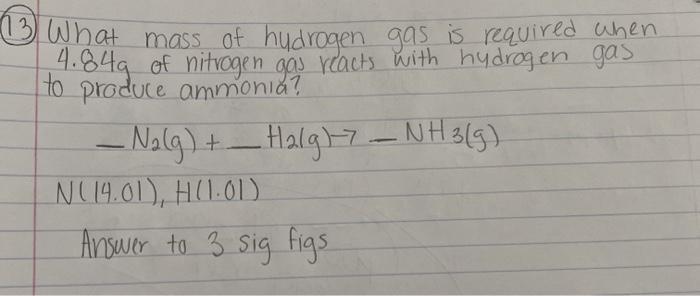 13 What mass of hydrogen gas is required when
4.84g of nitrogen gas reacts with hydrogen gas
to produce ammonia?
_ N2(g) + _ H2(g) → _ NH3(g)
N(14.01), H(1.01)
Answer to 3 sig figs